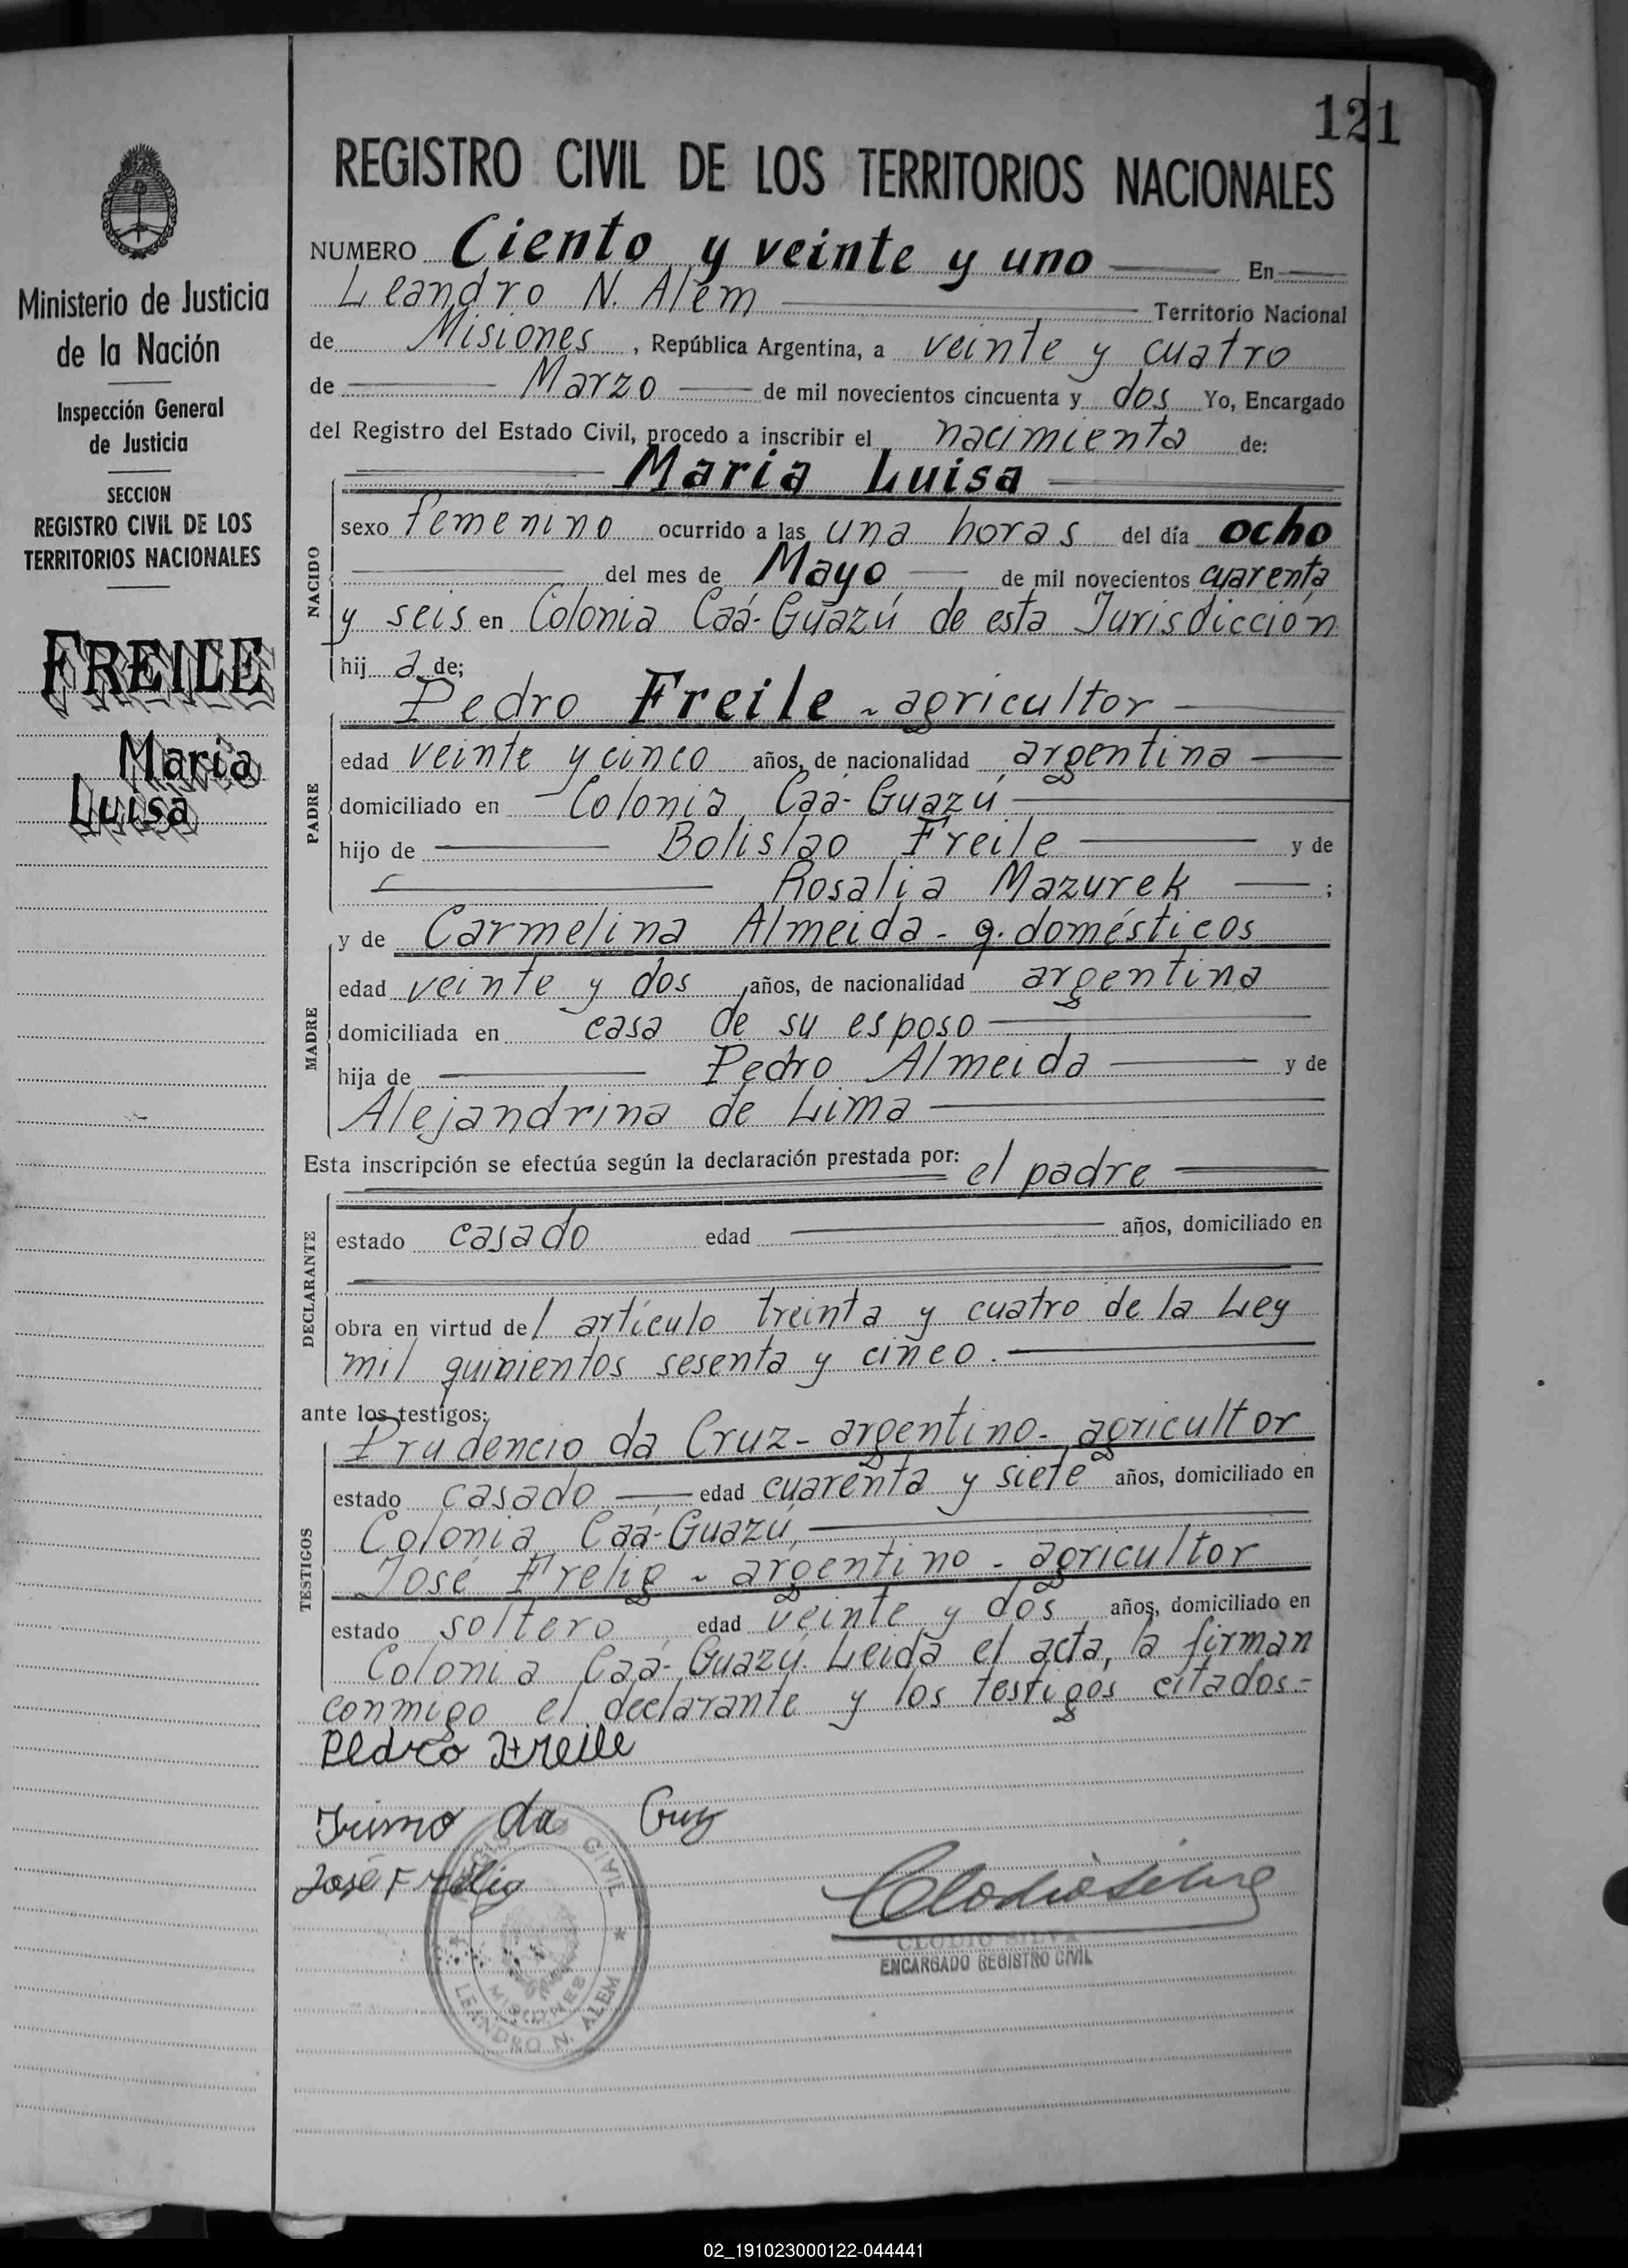 121
REGISTRO CIVIL DE LOS TERRITORIOS NACIONALES
Ministerio de Justicia
de la Nación
Inspección General
de Justicia
SECCION
REGISTRO CIVIL DE LOS
TERRITORIOS NACIONALES
FREILE
Maria
Luisa
NUMERO Ciento y veinte y uno En
Leandro N. Alem Territorio Nacional
de Misiones, República Argentina, a veinte y cuatro
de Marzo de mil novecientos cincuenta y dos Yo, Encargado
del Registro del Estado Civil, procedo a inscribir el nacimiento de:
Maria Luisa
NACIDO
sexo femenino ocurrido a las una horas del día ocho
del mes de Mayo de mil novecientos cuarenta
y seis en Colonia Caá-Guazú de esta Jurisdicción
hija de;
Pedro Freile - agricultor
PADRE
edad veinte y cinco años, de nacionalidad argentina
domiciliado en Colonia Caá-Guazú
hijo de Bolislao Freile y de
Rosalia Mazurek ;
y de Carmelina Almeida - q. domésticos
MADRE
edad veinte y dos años, de nacionalidad argentina
domiciliada en casa de su esposo
hija de Pedro Almeida y de
Alejandrina de Lima
Esta inscripción se efectúa según la declaración prestada por: el padre
DECLARANTE
estado casado edad años, domiciliado en
obra en virtud del artículo treinta y cuatro de la Ley
mil quinientos sesenta y cinco.
ante los testigos:
Prudencio da Cruz - argentino - agricultor
TESTIGOS
estado casado edad cuarenta y siete años, domiciliado en
Colonia Caá-Guazú,
José Frelig - argentino - agricultor
estado soltero edad veinte y dos años, domiciliado en
Colonia Caá-Guazú. Leida el acta, la firman
conmigo el declarante y los testigos citados.-
Pedro Freile
da Cruz
José Frelig
REGISTRO CIVIL
MISIONES
LEANDRO N. ALEM
Clodio Silva
CLODIO SILVA
ENCARGADO REGISTRO CIVIL
02_191023000122-044441